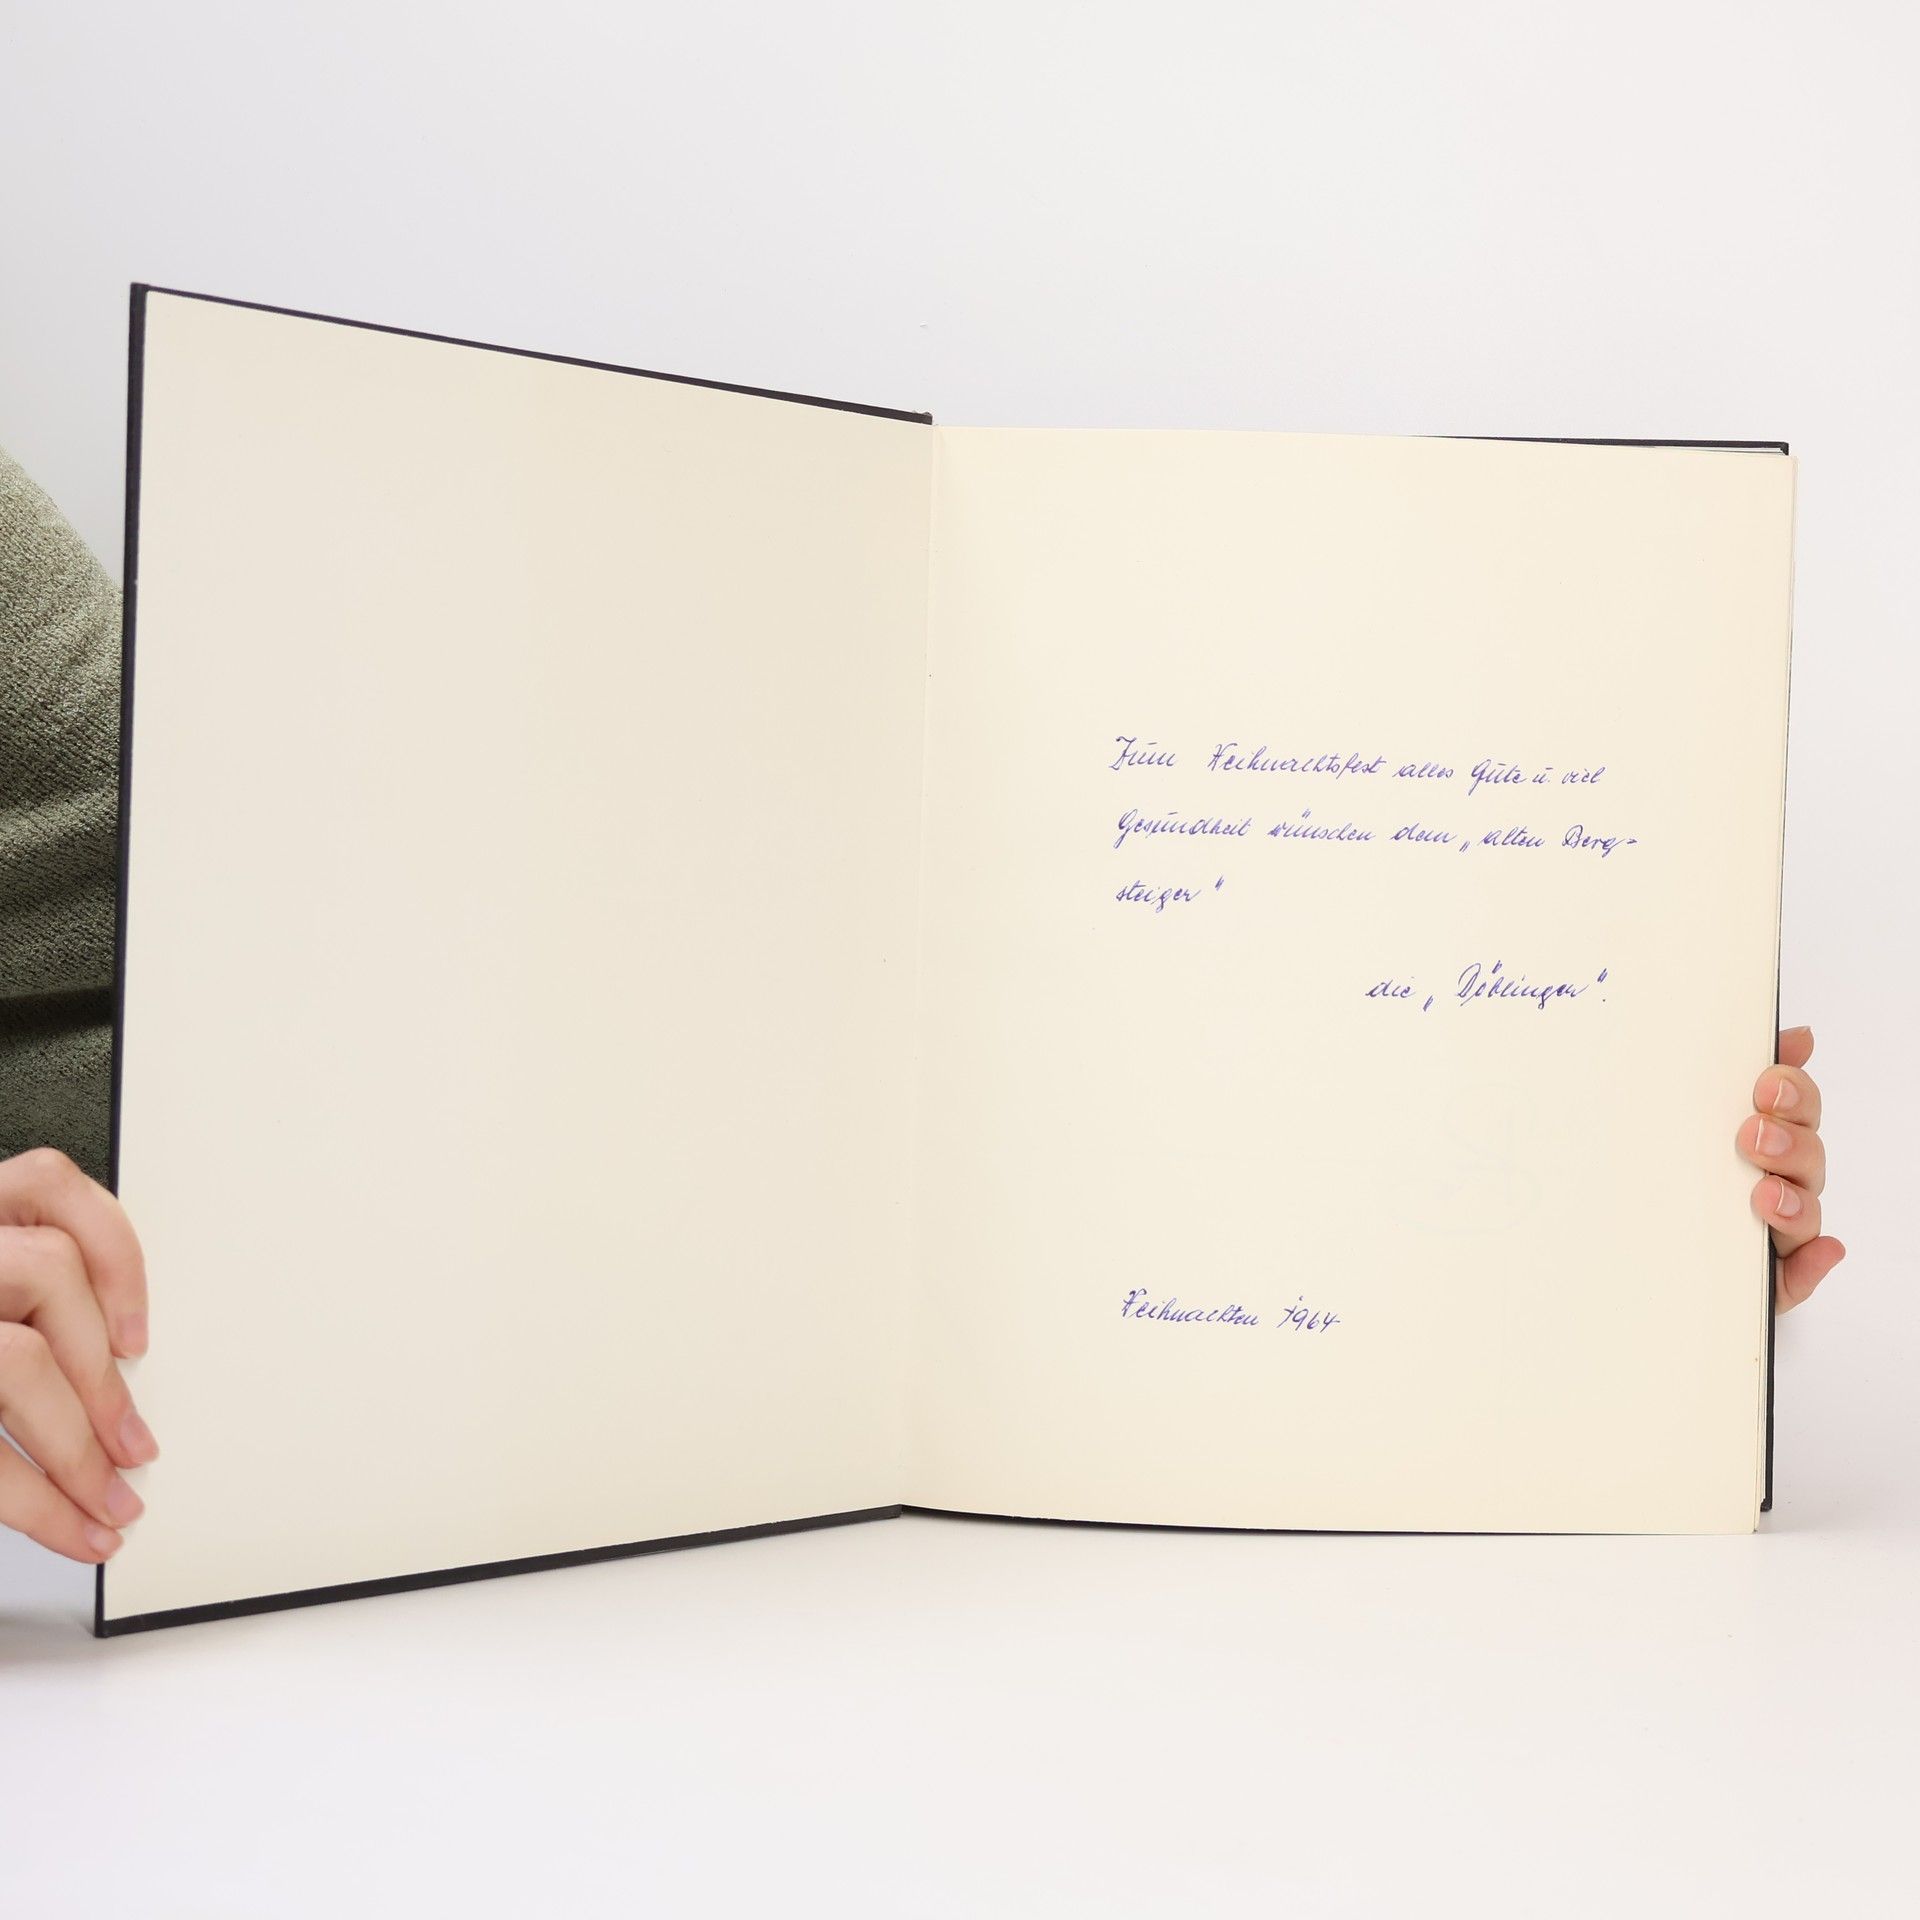 Zum Weihnachtsfest alles Gute u. viel
Gesundheit wünschen dem „alten Berg=
steiger"
die „Döblinger".
Weihnachten 1964